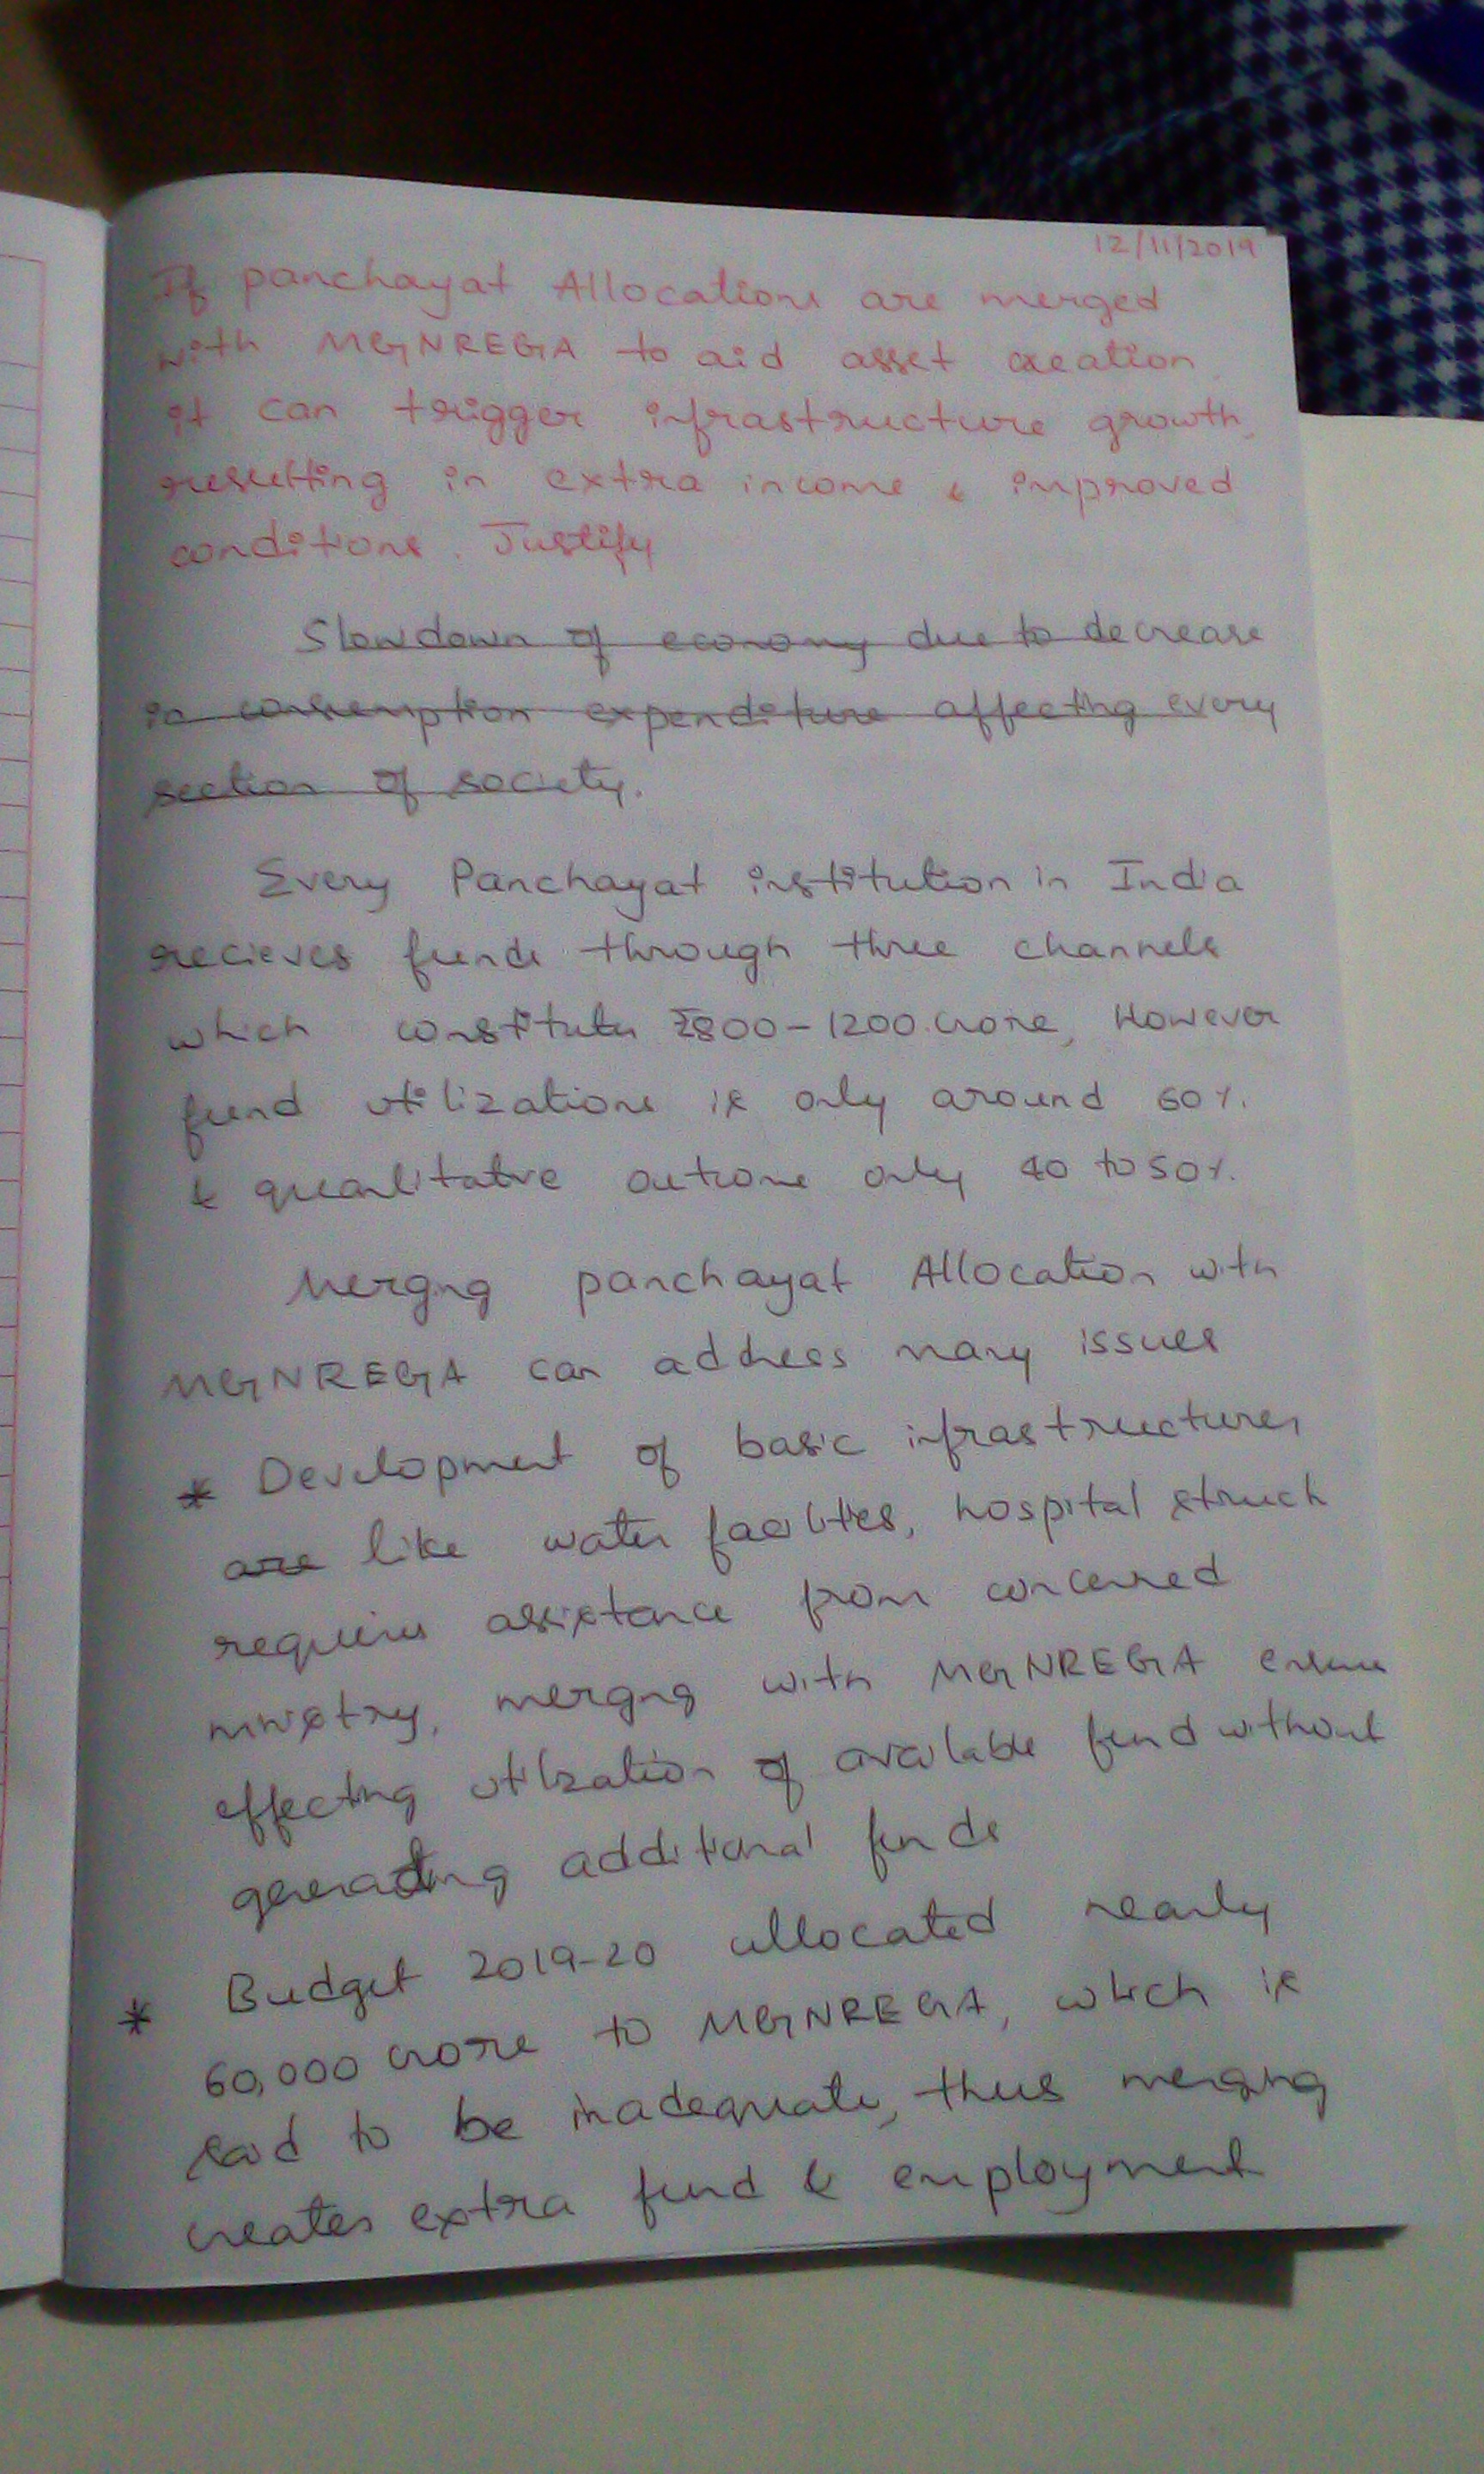 12/11/2019
If panchayat Allocations are merged
with MGNREGA to aid asset creation
it can trigger infrastructure growth,
resulting in extra income & improved
conditions. Justify
Slowdown of economy due to decrease
in consumption expenditure affecting every
section of society.
Every Panchayat institution in India
recieves funds through three channels
which constitutes ₹800-1200 crore, However
fund utilizations is only around 60%.
& qualitative outcome only 40 to 50%.
Merging panchayat Allocation with
MGNREGA can address many issues
* Development of basic infrastructures
are like water facilities, hospital struch
requires assistance from concerned
ministry, merging with MGNREGA ensure
effecting utilization of available fund without
generating additional funds
* Budget 2019-20 allocated nearly
60,000 crore to MGNREGA, which is
said to be inadequate, thus merging
creates extra fund & employment